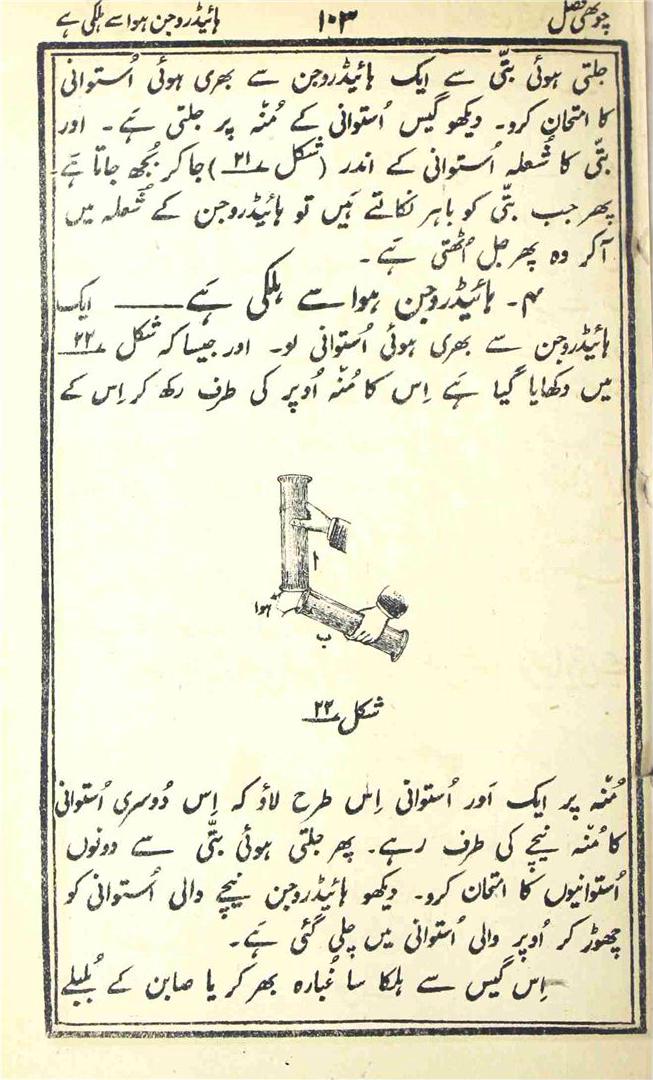 چوتھی فصل ۱۰۳ ہائیڈروجن ہوا سے ہلکی ہے
جلتی ہوئی بتّی سے ایک ہائیڈروجن سے بھری ہوئی اُستوانی
کا امتحان کرو۔ دیکھو گیس اُستوانی کے مُنّہ پر جلتی ہَے۔ اور
بتّی کا شُعلہ اُستوانی کے اندر (شکل ۲۱) جا کر بُجھ جاتا ہَے
پھر جب بتّی کو باہر نکالتے ہَیں تو ہائیڈروجن کے شُعلہ میں
آکر وہ پھر جل اُٹھتی ہَے۔
۴۔ ہائیڈروجن ہوا سے ہلکی ہَے ــــــ ایک
ہائیڈروجن سے بھری ہوئی اُستوانی لو۔ اور جیسا کہ شکل ۲۲
میں دکھایا گیا ہَے اِس کا مُنّہ اُوپر کی طرف رکھ کر اِس کے
ا
ہوا
ب
شکل ۲۲
مُنّہ پر ایک اَور اُستوانی اِس طرح لاؤ کہ اِس دُوسری اُستوانی
کا مُنّہ نیچے کی طرف رہے۔ پھر جلتی ہوئی بتّی سے دونوں
اُستوانیوں کا امتحان کرو۔ دیکھو ہائیڈروجن نیچے والی اُستوانی کو
چھوڑ کر اُوپر والی اُستوانی میں چلی گئی ہَے۔
اِس گیس سے ہلکا سا غُبارہ بھر کر یا صابن کے بُلبلے